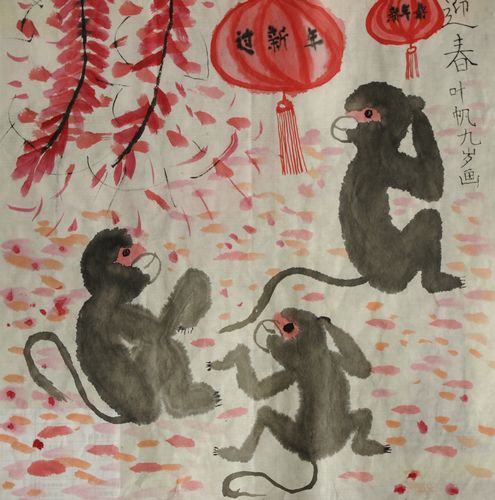 迎春
叶帆九岁画
过新年
新年好